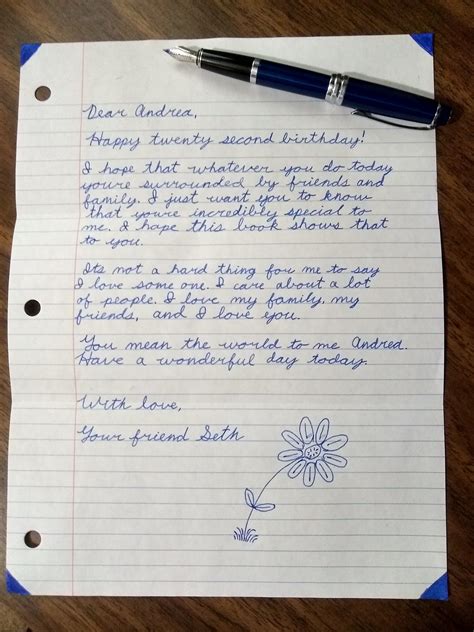 Dear Andrea,
Happy twenty second birthday!
I hope that whatever you do today
you're surrounded by friends and
family. I just want you to know
that you're incredibly special to
me. I hope this book shows that
to you.
Its not a hard thing for me to say
I love some one. I care about a lot
of people. I love my family, my
friends, and I love you.
You mean the world to me Andrea.
Have a wonderful day today.
With love,
Your friend Seth